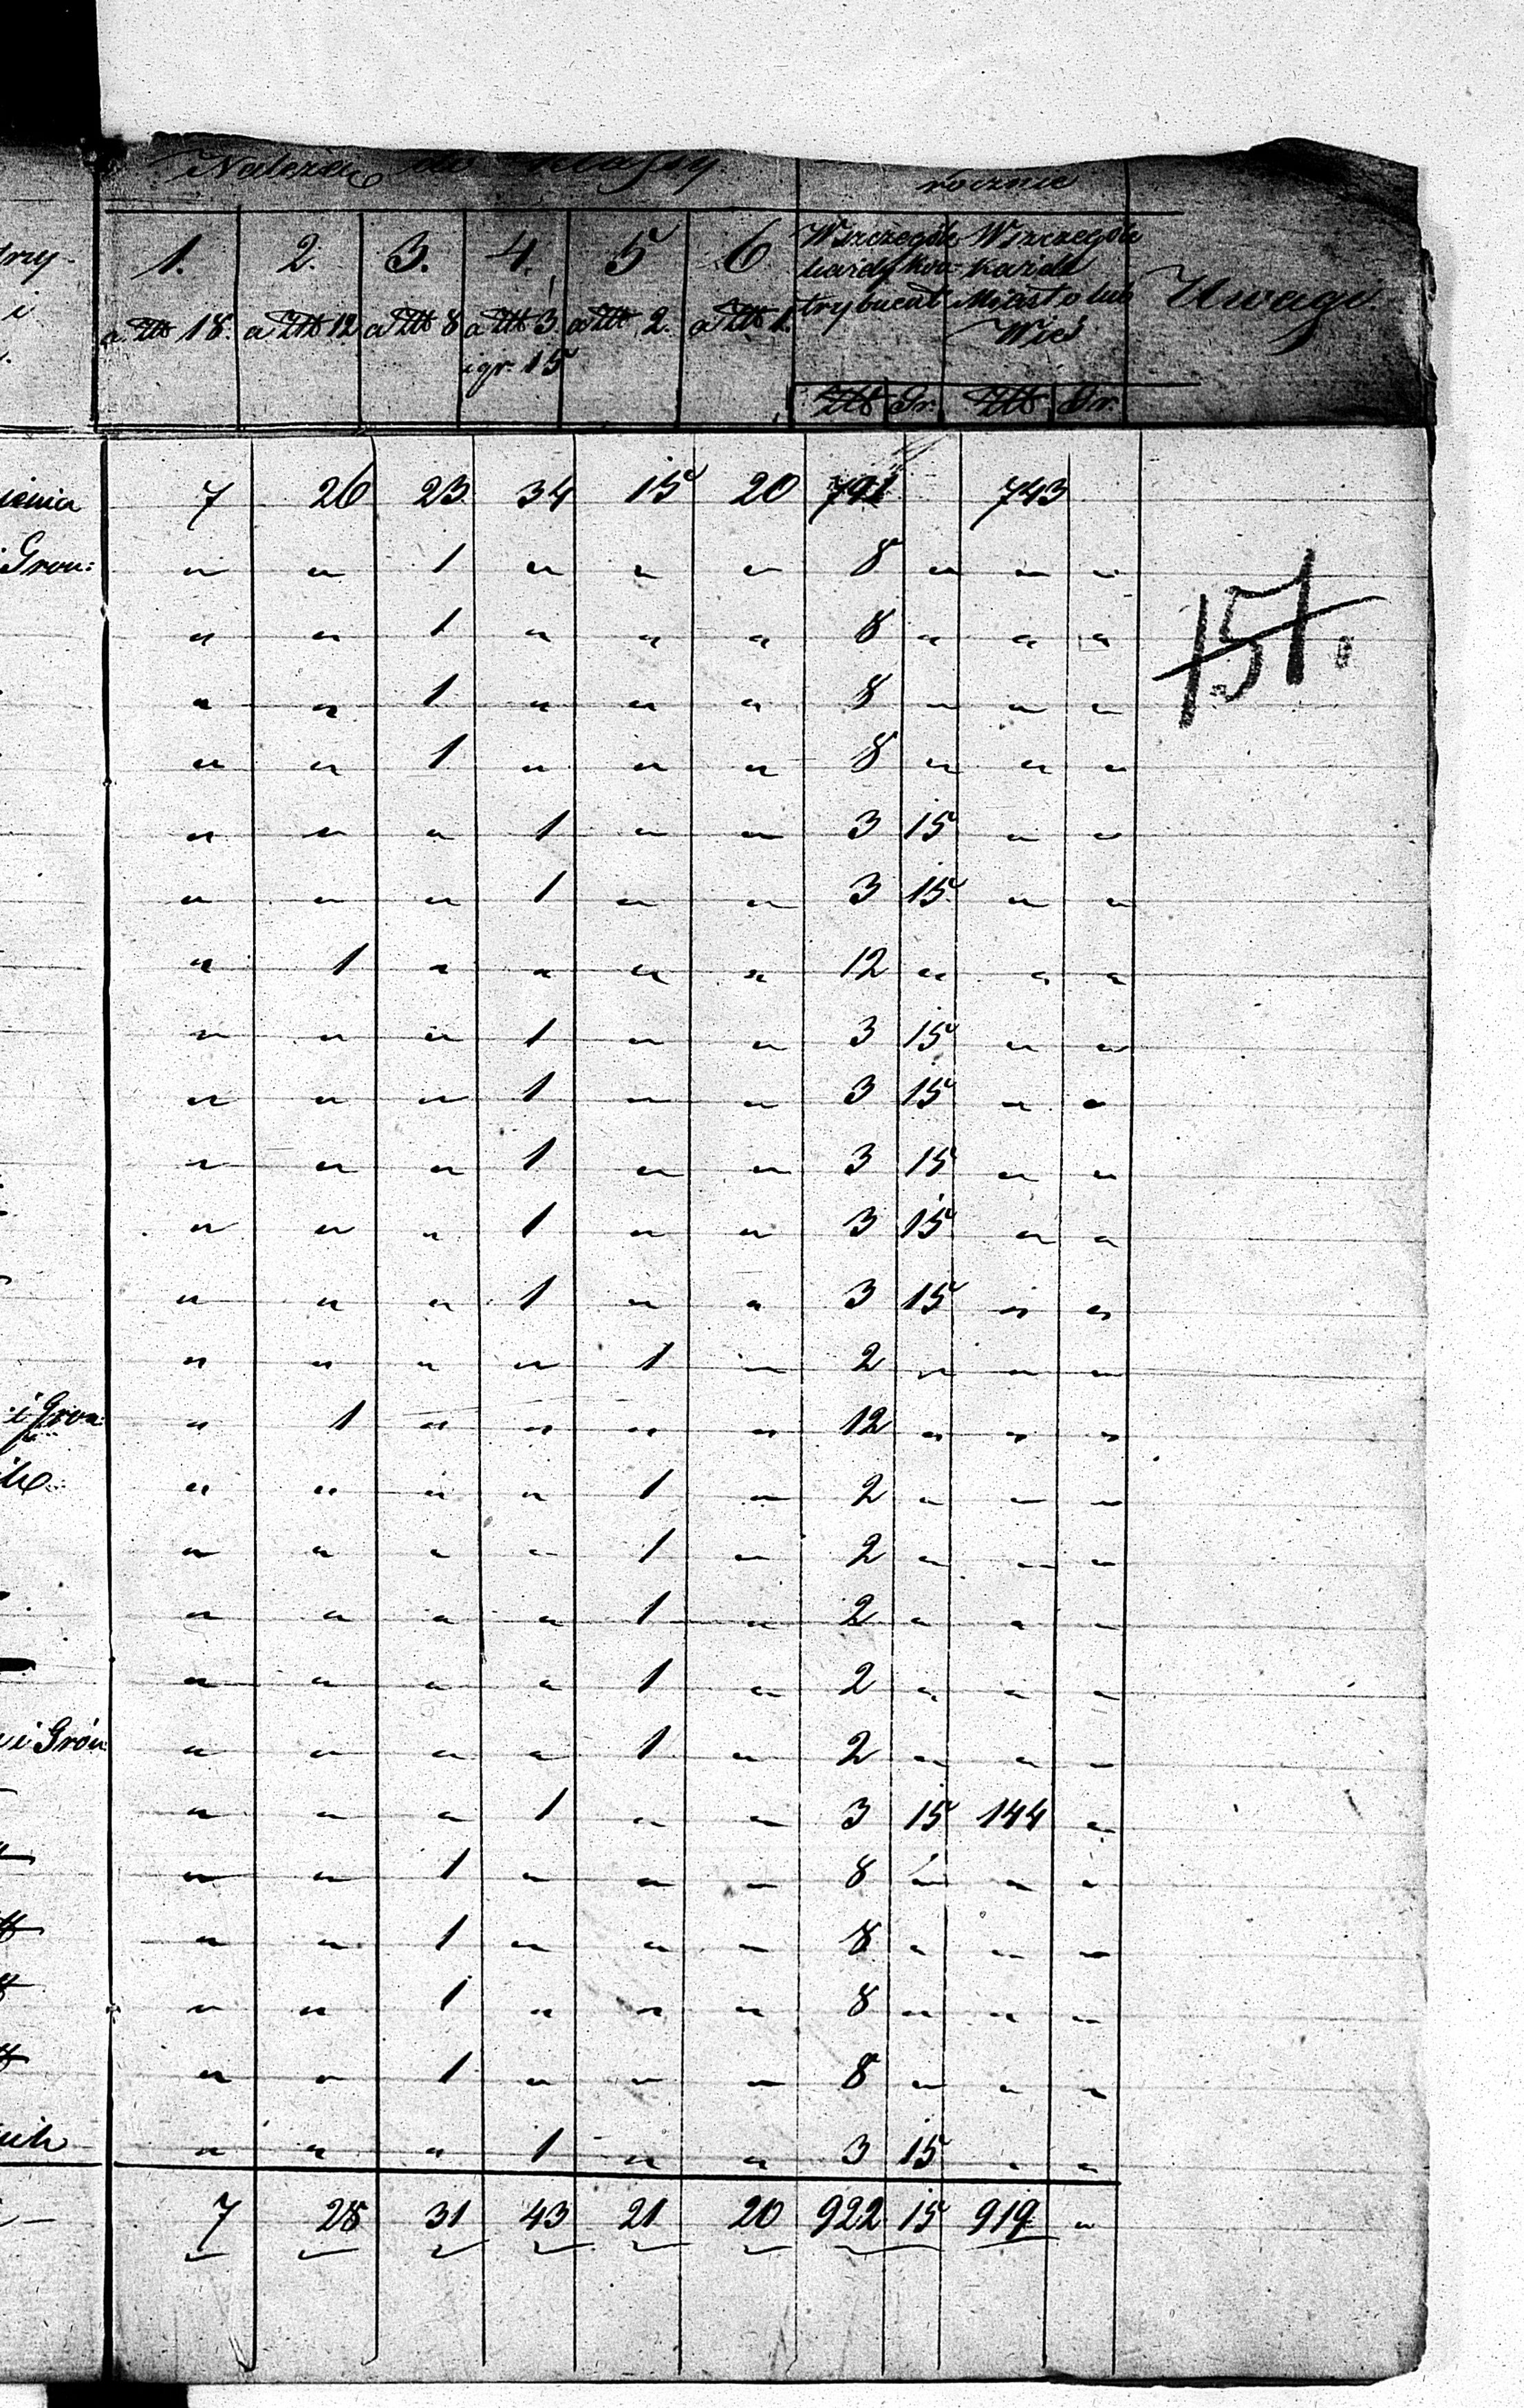 Należą do klassy rocznie
1. 2. 3. 4. 5 6 Wszczególe Wszczególe Uwagi
każdy kon= każde
trybuent Miasto lub
a Złł 18. a Złł 12 a Złł 8 a Złł 3 a Złł 2. a Złł 1. Wieś
i gr. 15
Złł Gr. Złł Gr.
7 26 23 34 15 20 743
i Grou: " " 1 " " " 8 " " "
" " 1 " " " 8 " " "
151.
" " 1 " " " 8 " " "
" " 1 " " " 8 " " "
" " " 1 " " 3 15 " "
" " " 1 " " 3 15 " "
" 1 " " " " 12 " " "
" " " 1 " " 3 15 " "
" " " 1 " " 3 15 " "
" " " 1 " " 3 15 " "
" " " 1 " " 3 15 " "
" " " 1 " " 3 15 " "
" " " " 1 " 2 " " "
" 1 " " " " 12 " " "
" " " " 1 " 2 " " "
" " " " 1 " 2 " " "
" " " " 1 " 2 " " "
" " " " 1 " 2 " " "
i Gròu " " " " 1 " 2 " " "
" " " 1 " " 3 15 144 "
" " 1 " " " 8 " " "
" " 1 " " " 8 " " "
" " 1 " " " 8 " " "
" " 1 " " " 8 " " "
" " " 1 " " 3 15 " "
7 28 31 43 21 20 922 15 919 "